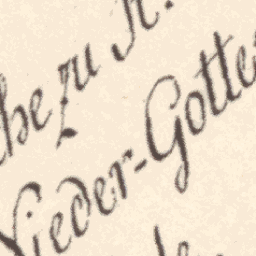 he zu K.
Nieder-Gotte